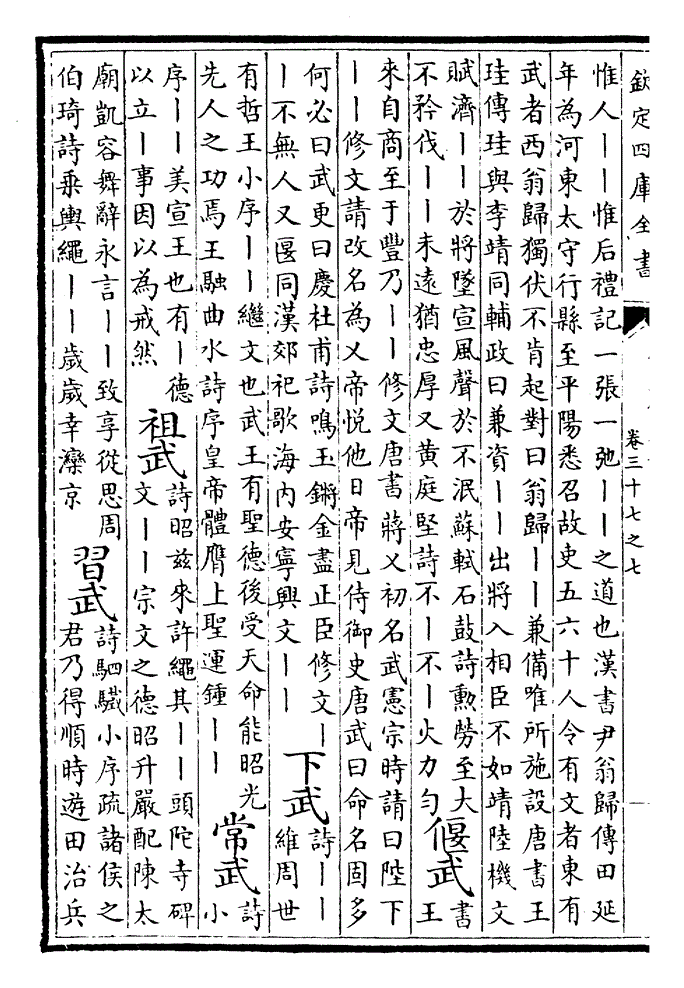 欽定四庫全書
卷三十七之七
惟人丨丨惟后禮記一張一弛丨丨之道也漢書尹翁歸傳田延
年為河東太守行縣至平陽悉召故吏五六十人令有文者東有
武者西翁歸獨伏不肯起對曰翁歸丨丨兼備唯所施設唐書王
珪傳珪與李靖同輔政曰兼資丨丨出將入相臣不如靖陸機文
賦濟丨丨於將墜宣風聲於不泯蘇軾石鼓詩勲勞至大
不矜伐丨丨未遠猶忠厚又黄庭堅詩不丨不丨火力匀
偃武
書
王
來自商至于豐乃丨丨修文唐書蔣乂初名武憲宗時請曰陛下
丨丨修文請改名為乂帝悦他日帝見侍御史唐武曰命名固多
何必曰武更曰慶杜甫詩鳴玉鏘金盡正臣修文丨
丨不無人又偃同漢郊祀歌海内安寧興文丨丨
下武
詩丨丨
維周世
有哲王小序丨丨繼文也武王有聖德後受天命能昭光
先人之功焉王融曲水詩序皇帝體膺上聖運鍾丨丨
常武
詩
小
序丨丨美宣王也有丨德
以立丨事因以為戒然
祖武
詩昭兹來許繩其丨丨頭陀寺碑
文丨丨宗文之德昭升嚴配陳太
廟凱容舞辭永言丨丨致享從思周
伯琦詩乗輿繩丨丨歲歲幸灤京
習武
詩駟驖小序疏諸侯之
君乃得順時遊田治兵